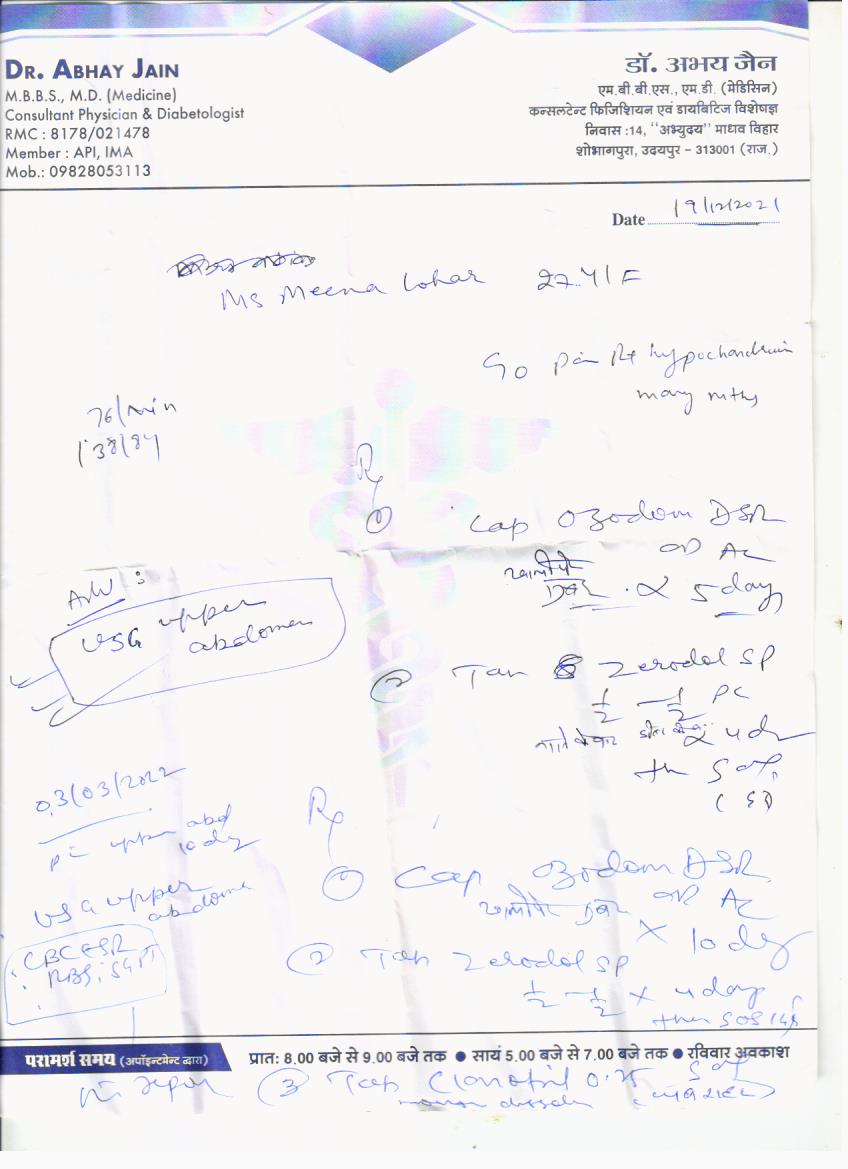 DR. ABHAY JAIN
M.B.B.S., M.D. (Medicine)
Consultant Physician & Diabetologist
RMC : 8178/021478
Member : API, IMA
Mob.: 09828053113
डॉ. अभय जैन
एम.बी.बी.एस., एम.डी. (मेडिसिन)
कन्सलटेन्ट फिजिशियन एवं डायबिटिज विशेषज्ञ
निवास :14, "अभ्युदय" माधव विहार
शोभागपुरा, उदयपुर - 313001 (राज.)
Date 19/12/2021
Ms Meena Lohar 27.Y/F
Pain Rt hypochondrium
many mths
76/min
138/84
Rx
① Cap Ozodom DSR
OD AC
x 5 day
Adv :
USG upper
abdomen
② Tab Zerodol SP
1/2 — 1/2 PC
x 4 d
then SOS
03/03/2022
upper abd
10 day
USG upper
abdomen
CBC ESR
RBS, SGPT
Rx
① Cap Ozodom DSR
OD AC
x 10 day
② Tab Zerodol SP
1/2 — 1/2 x 4 day
then SOS
परामर्श समय (अपॉइन्टमेन्ट द्वारा)
प्रात: 8.00 बजे से 9.00 बजे तक ● सायं 5.00 से 7.00 बजे तक ● रविवार अवकाश
③ Tab Clonotril 0.25